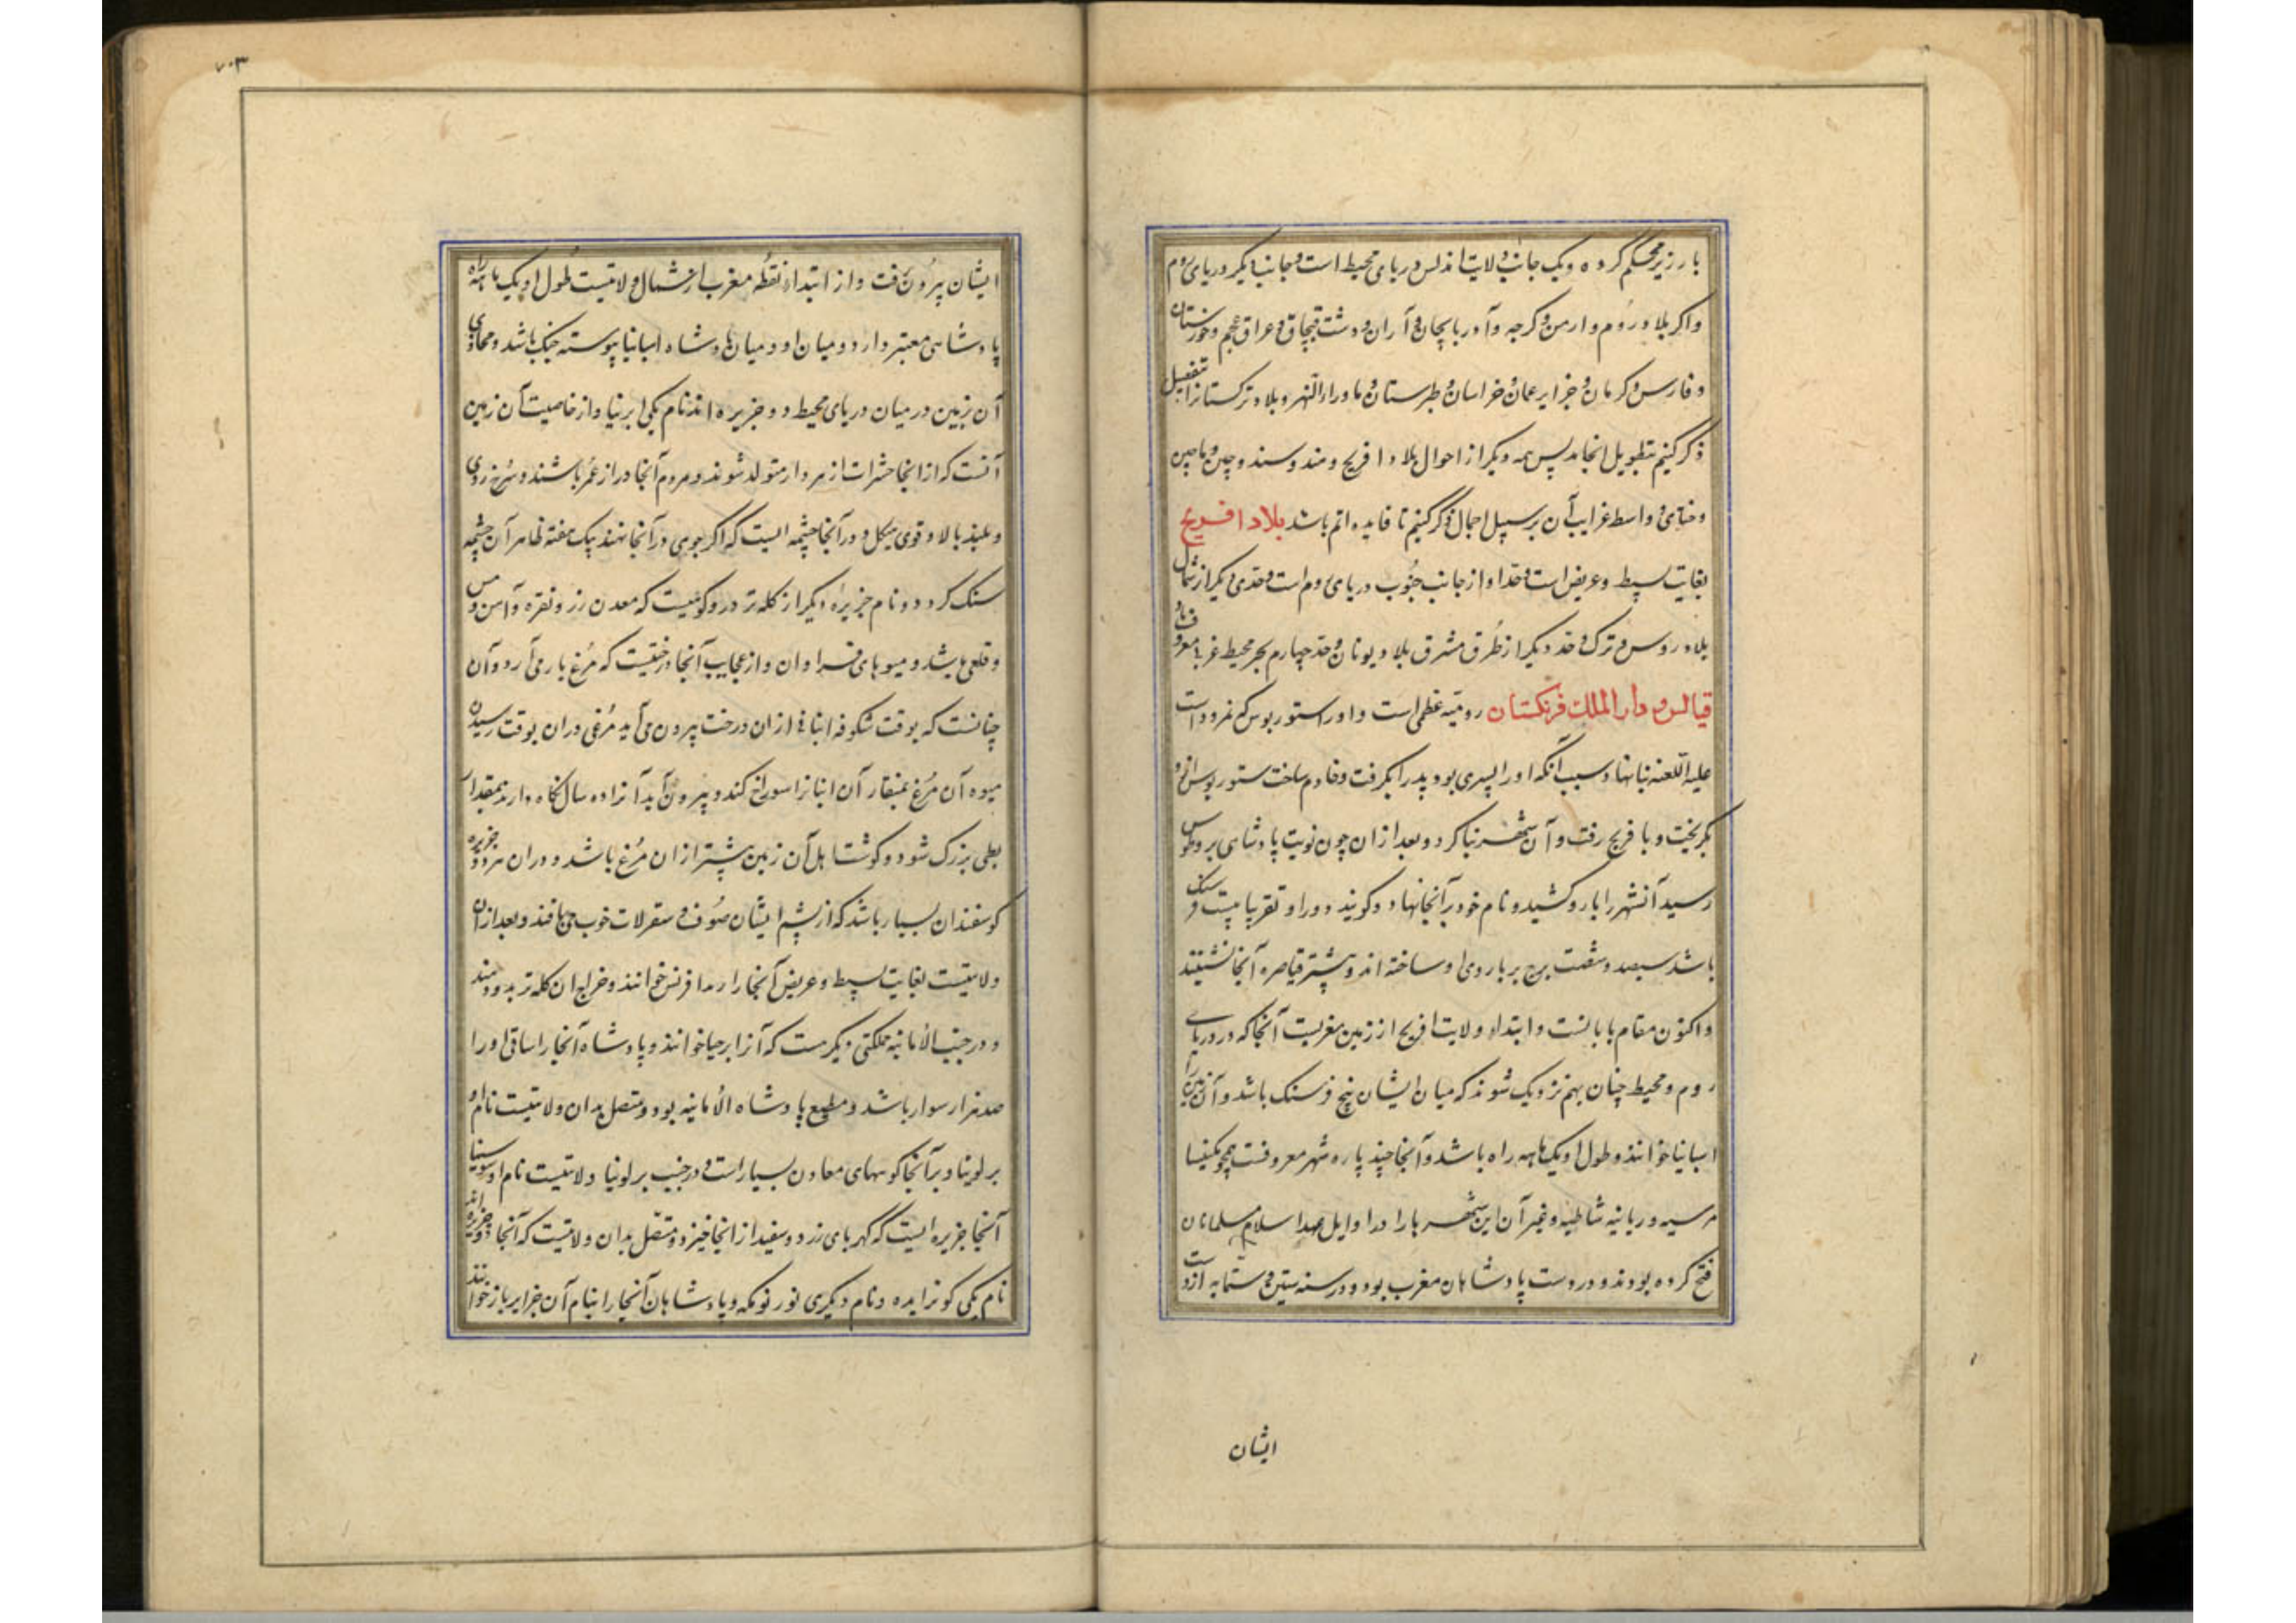 بارزیز محکم کرده و یک جانب ولایت اندلس دریای محیط است و جانب دیگر دریای روم
و اکر بلاد روم و ارمن و کرجه و آذربایجان و آران و دشت قبچاق و عراق عجم و خوزستان
و فارس و کرمان و جزایر عمان و خراسان و طبرستان و ماوراء النهر و بلاد ترکستانرا بتفصیل
ذکر کنیم بتطویل انجامد پس همه دیگر از احوال بلاد افرنج و هند و سند و چین و ماچین
و ختای و اسط غرایب آن بر سبیل اجمال ذکر کنیم تا فایده اتم باشد بلاد افرنج
بغایت بسیط و عریض است و حد او از جانب جنوب دریای روم است و حدی دیگر از شمال
بلاد روس و ترک و حد دیگر از طرق مشرق بلاد یونان و حد چهارم بحر محیط غربی معروف باو
قیالس دار الملک فرنکستان رومیه عظمی است و اورا ستوربوس که نمرود است
علیه اللعنه بنا نهاد و سبب آنکه او را پسری بود پدر را بگرفت و خادم ساخت ستوربوس ازو
بگریخت و با فرنج رفت و آن شهر بنا کرد و بعد از ان چون نوبت پادشاهی بر وملوس
رسید آنشهر را بارو کشید و نام خود بر آنجا نهاد و کویند دور او تقریبا بیست فرسنک
باشد سیصد و شصت برج بر باروی او ساخته اند و پیشتر قیاصره آنجا نشستند
و اکنون مقام باباست و ابتداء ولایت افرنج از زمین مغربست آنجا که دریای
روم و محیط چنان بهم نزدیک شوند که میان ایشان پنج فرسنک باشد و آن زمین را
اسبانیا خوانند و طول او یک ماهه راه باشد و آنجا چند پاره شهر معروفست همچو بلنسیا
مرسیه و ریانیه شاطبه و غیر آن این شهرها را در اوایل عهد اسلام مسلمانان
فتح کرده بودند و در دست پادشاهان مغرب بود و در سنه ستین و ستمایه از دست
ایشان
۷۰۳
ایشان بیرون رفت و از ابتداء نقطه مغرب از شمال ولایتیست طول او یک ماهه راه
پادشاهی معتبر دارد و میان او و میان پادشاه اسبانیا پیوسته جنک باشد و محاذی
آن زمین در میان دریای محیط دو جزیره اند نام یکی ابرنیا و از خاصیت آن زمین
آنست که از انجا حشرات زهردار متولد نشوند و مردم آنجا دراز عمر باشند و سرخ روی
و بلند بالا و قوی هیکل و در آنجا چشمه ایست که اکر چوبی در آنجا نهند بیک هفته ظاهر آن چشمه
سنک کردد و نام جزیره دیکر از کله تر درو کوهیست که معدن زر و نقره و آهن و مس
و قلعی باشد و میوهای فراوان و از عجایب آنجا درختیست که مرغ بار می آرد و آن
چنانست که بوقت شکوفه انبانی از ان درخت بیرون می آید مرغی در ان بوقت رسیدن
میوه آن مرغ بمنقار آن انبانرا سوراخ کند و بیرون آید آنرا دو سال نکاه دارند بمقدار
بطی بزرک شود و کوشت اهل آن زمین بیشتر از ان مرغ باشد و در ان هر دو جزیره
کوسفندان بسیار باشد که از پشم ایشان صوف و سقرلات خوب می بافند و بعد از ان
ولایتیست بغایت بسیط و عریض آنجا را ریدافرنس خوانند و خراج ان کله تر بدو دهند
و در جنب الامانیه مملکتی دیکر هست که آنرا برحیا خوانند و پادشاه آنجا راساقی اورا
صد هزار سوار باشد و مطیع پادشاه الامانیه بود و متصل بدان ولایتیست نام او
برلونیا و بر آنجا کوههای معادن بسیار است و در جنب برلونیا ولایتیست نام او سوسینا
آنجا جزیره ایست که کهربای زرد و سفید از انجا خیزد و متصل بدان ولایتیست که آنجا دو جزیره اند
نام یکی کوترایده و نام دیکری نورنومکه و پادشاهان آنجا را بنام آن جزایر باز خوانند